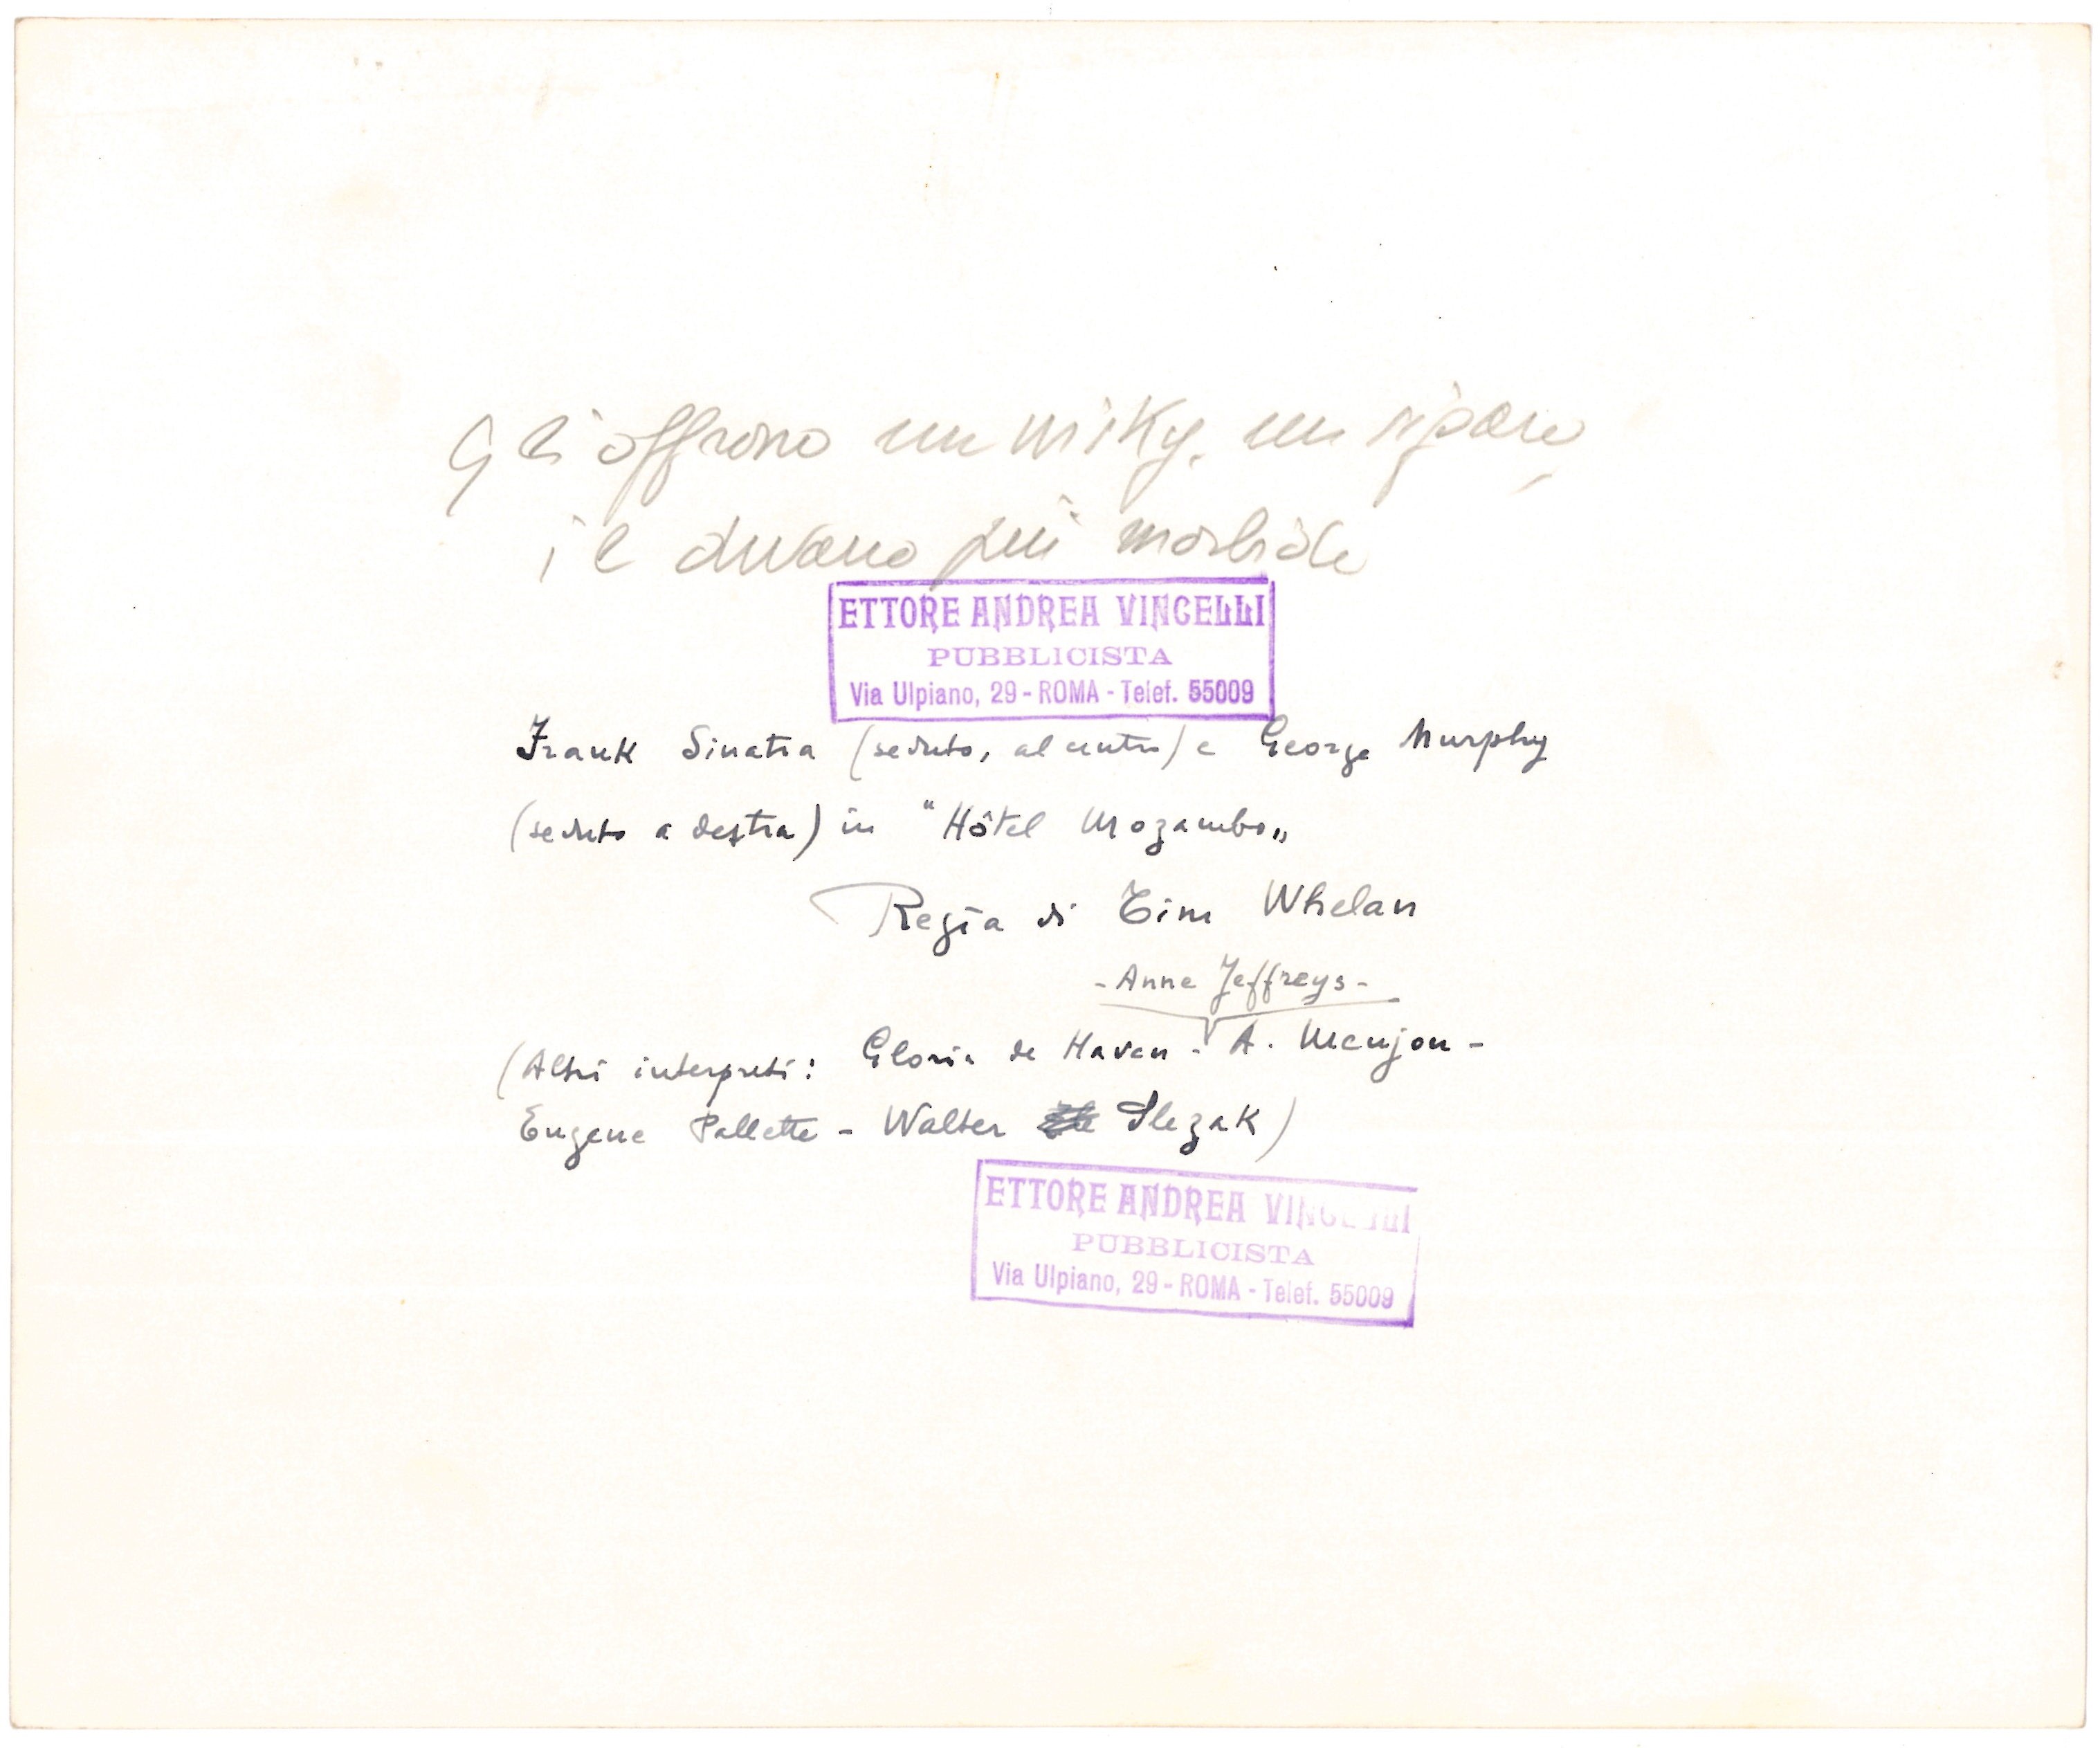 Gli offrono un wisky, un sigaro,
il divano più morbido
ETTORE ANDREA VINCELLI
PUBBLICISTA
Via Ulpiano, 29 - ROMA - Telef. 55009
Frank Sinatra (seduto, al centro) e George Murphy
(seduto a destra) in "Hôtel Mozambo„
Regia di Tim Whelan
- Anne Jeffreys -
(Altri interpreti: Gloria de Haven - A. Menjou -
Eugene Pallette - Walter Slezak)
ETTORE ANDREA VINCELLI
PUBBLICISTA
Via Ulpiano, 29 - ROMA - Telef. 55009